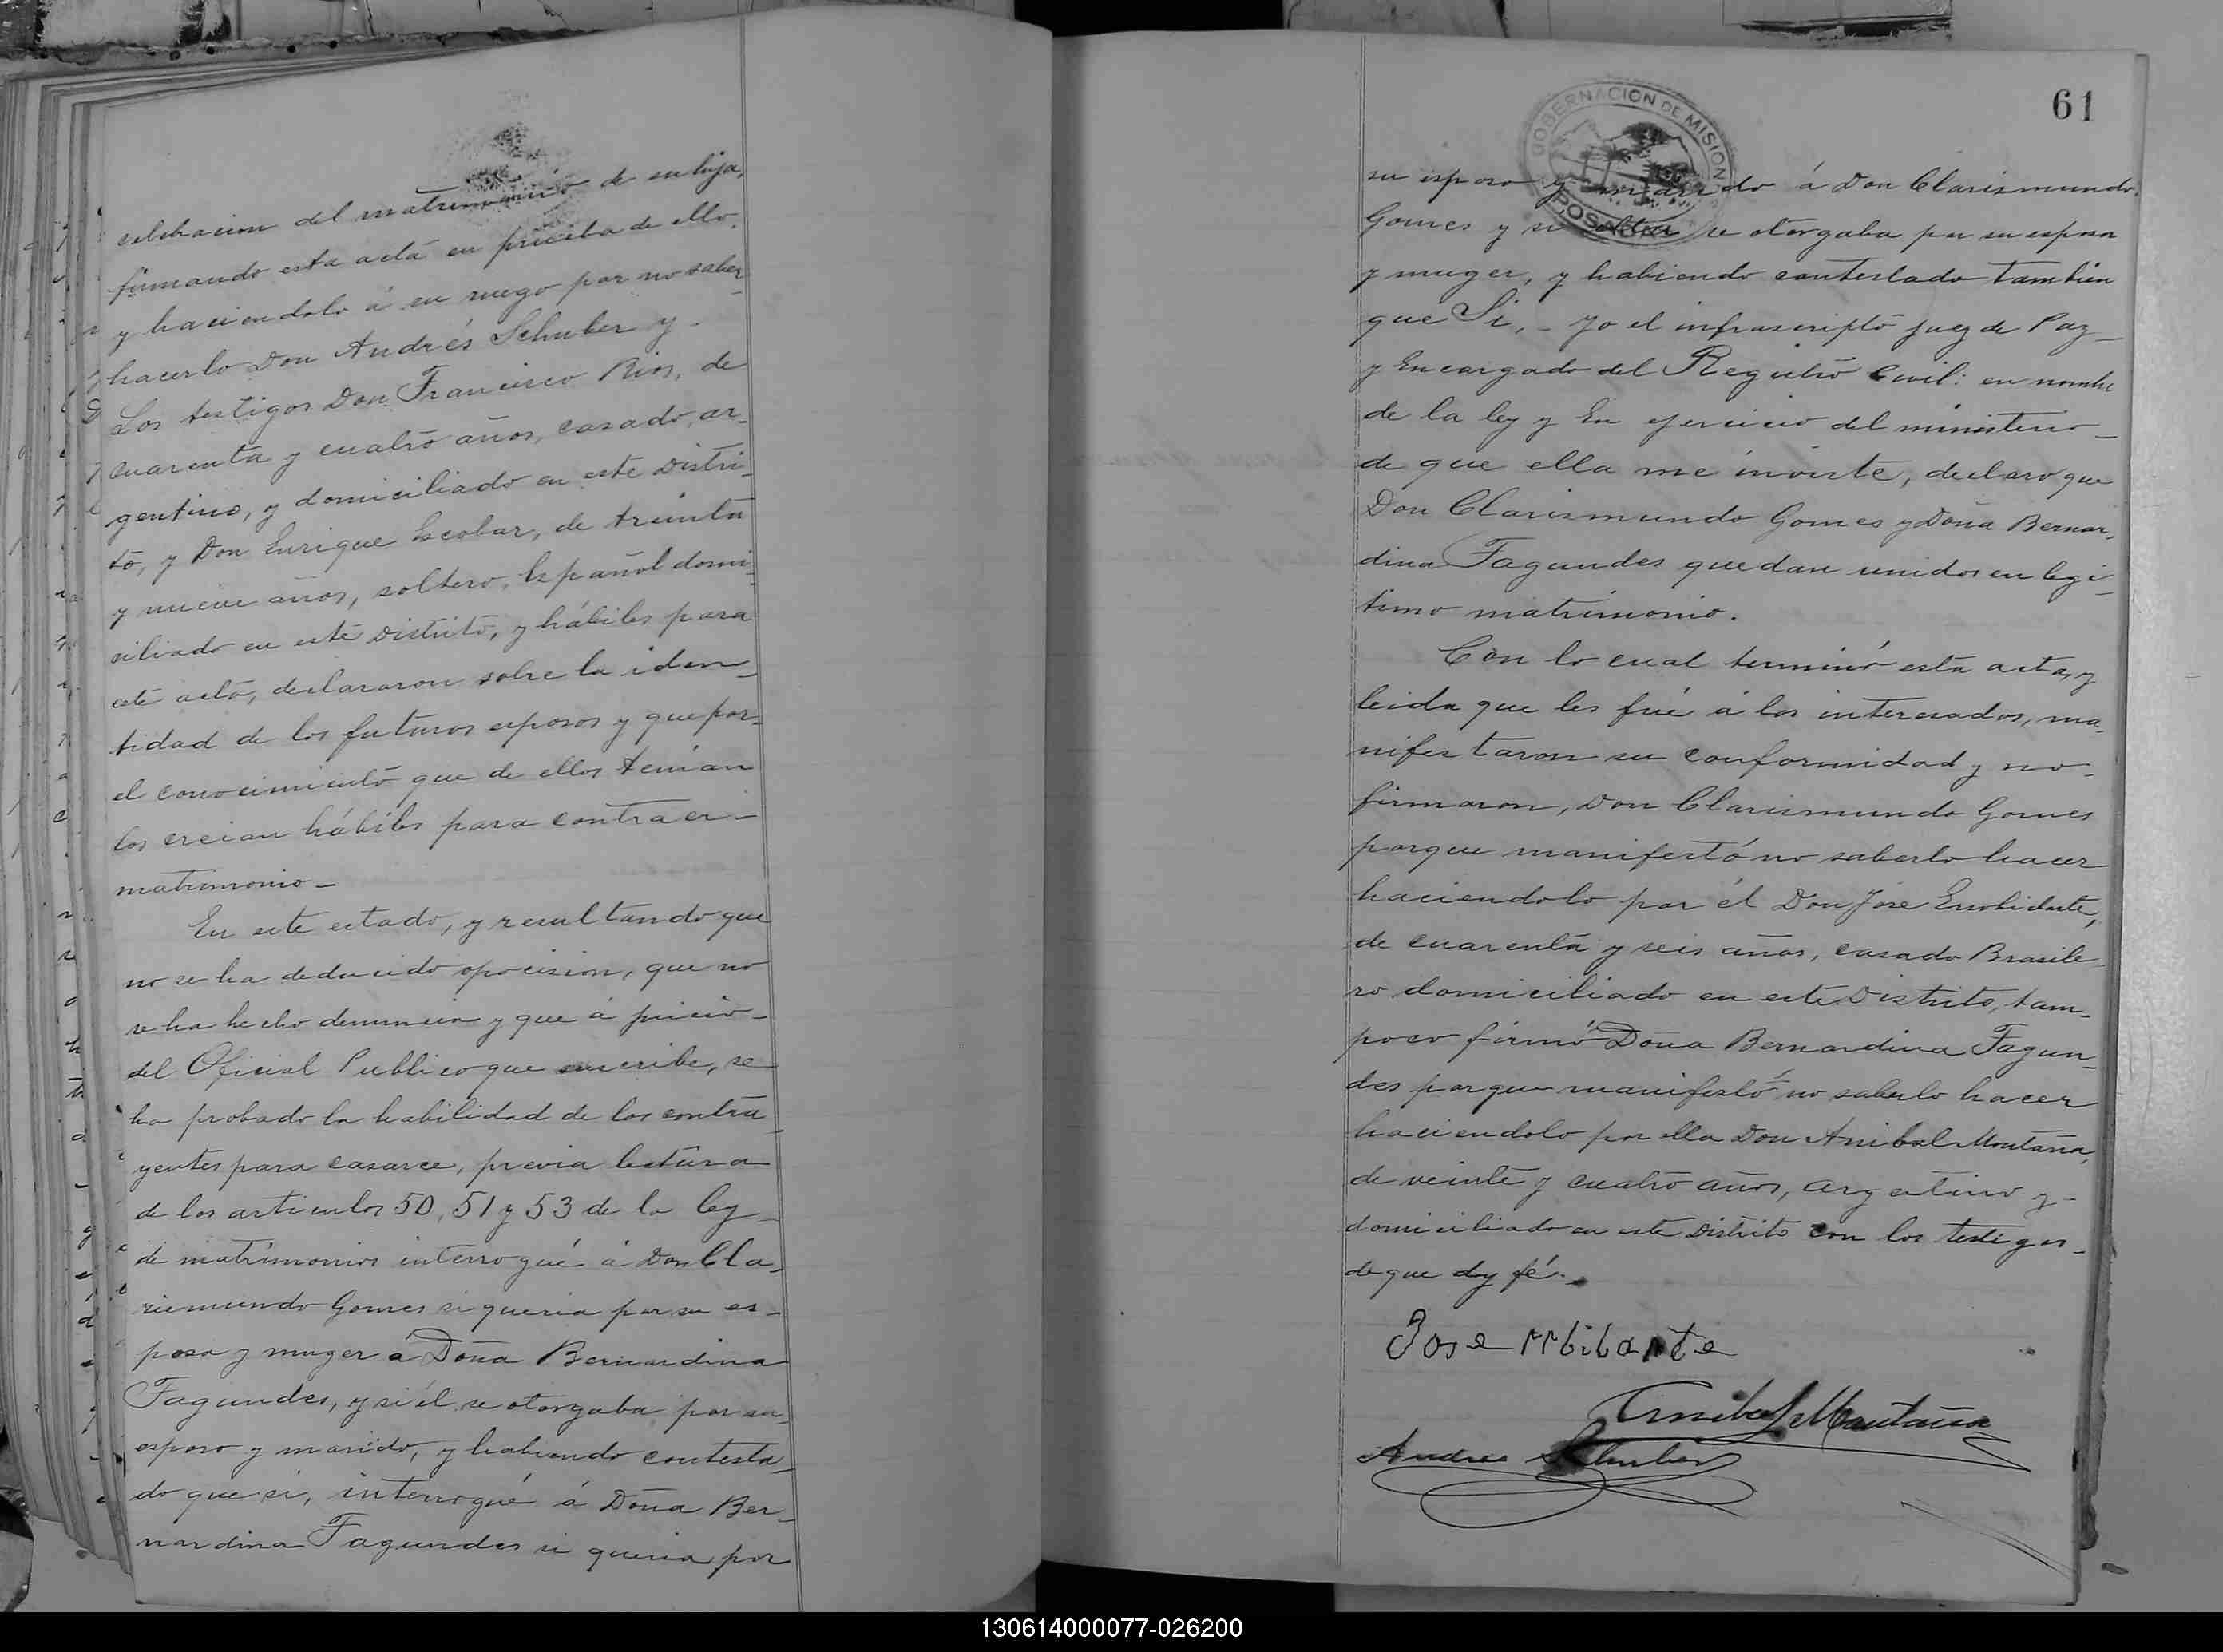 celebracion del matrimonio de su hija,
firmando esta acta en prueba de ello,
y haciendolo á su ruego por no saber
hacerlo Don Andrés Schuber y
Los testigos Don Francisco Rios, de
cuarenta y cuatro años, casado, ar-
gentino, y domiciliado en este Distri-
to, y Don Enrique Escobar, de treinta
y nueve años, soltero, Español domi-
ciliado en este Distrito, y hábiles para
este acto, declararon sobre la iden-
tidad de los futuros esposos y que por
el conocimiento que de ellos tenian
los creian hábiles para contraer
matrimonio-
En este estado, y resultando que
no se ha deducido oposision, que no
se ha hecho denuncia y que á juicio-
del Oficial Publico que suscribe, se
ha probado la habilidad de los contra
yentes para casarce, previa lectura
de los articulos 50, 51 y 53 de la ley
de matrimonios interrogué á Don Cla-
rismundo Gomes si queria por su es-
posa y muger á Doña Bernardina
Fagundes, y si él se otorgaba por su
esposo y marido, y habiendo contesta-
do que si, interrogué á Doña Ber-
nardina Fagundes si queria por
61
GOBERNACION DE MISION
POSADAS
su esposo y marido á Don Clarismundo
Gomes y si ella se otorgaba por su esposa
y muger, y habiendo contestado tambien
que Si, - Yo el infrascripto Juez de Paz-
y Encargado del Registro Civil: en nombre
de la ley y En ejercicio del ministerio-
de que ella me inviste, declaro que
Don Clarismundo Gomes y Doña Bernar-
dina Fagundes quedan unidos en legi-
timo matrimonio.
Con lo cual terminó esta acta, y
leida que les fué á los interesados, ma-
nifestaron su conformidad y no-
firmaron, Don Clarismundo Gomes
porque manifestó no saberlo hacer
haciendolo por él Don Jose
de cuarenta y seis años, casado Brasile-
ro domiciliado en este Distrito, tam-
poco firmó Doña Bernardina Fagun-
des porque manifestó no saberlo hacer
haciendolo por ella Don Anibal Montaña,
de veinte y cuatro años, argentino y-
domiciliado en este Distrito con los testigos-
de que doy fé.-
Jose
Anibal Montaña
Andres Schuber
130614000077-026200